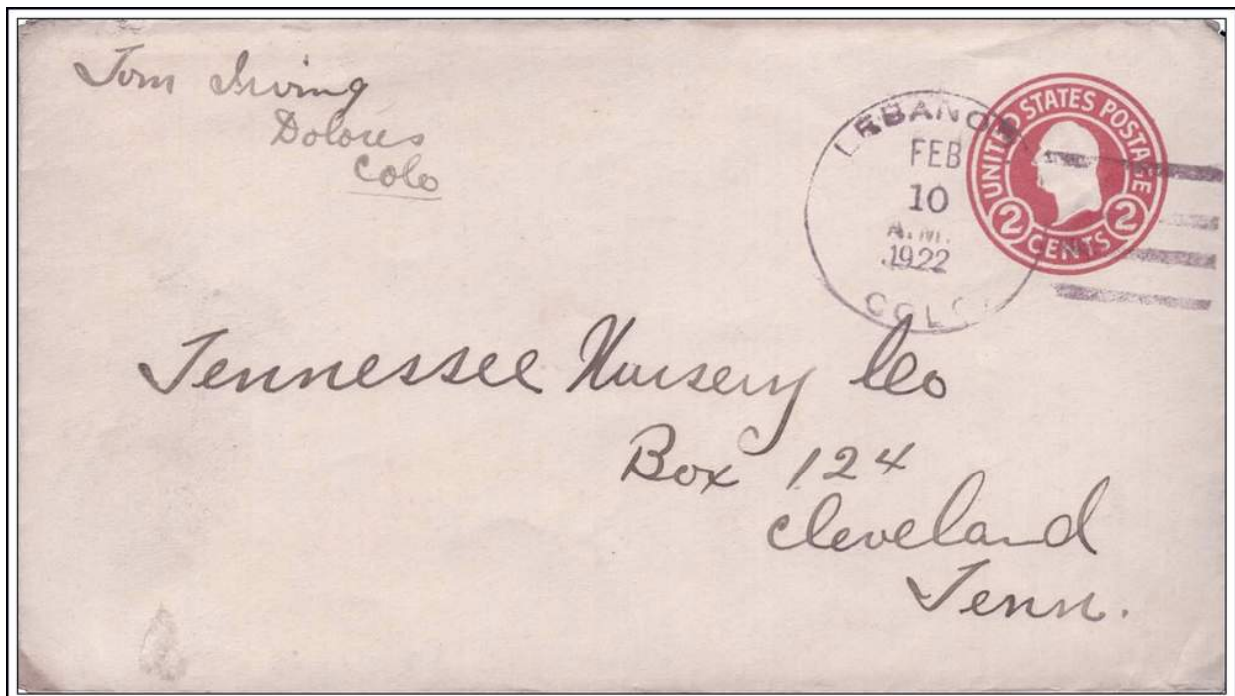 Tom Irving
Dolores
Colo
LEBANON
FEB
10
A.M.
1922
COLO.
UNITED STATES POSTAGE
2 CENTS 2
Tennessee Nursery Co
Box 124
Cleveland
Tenn.